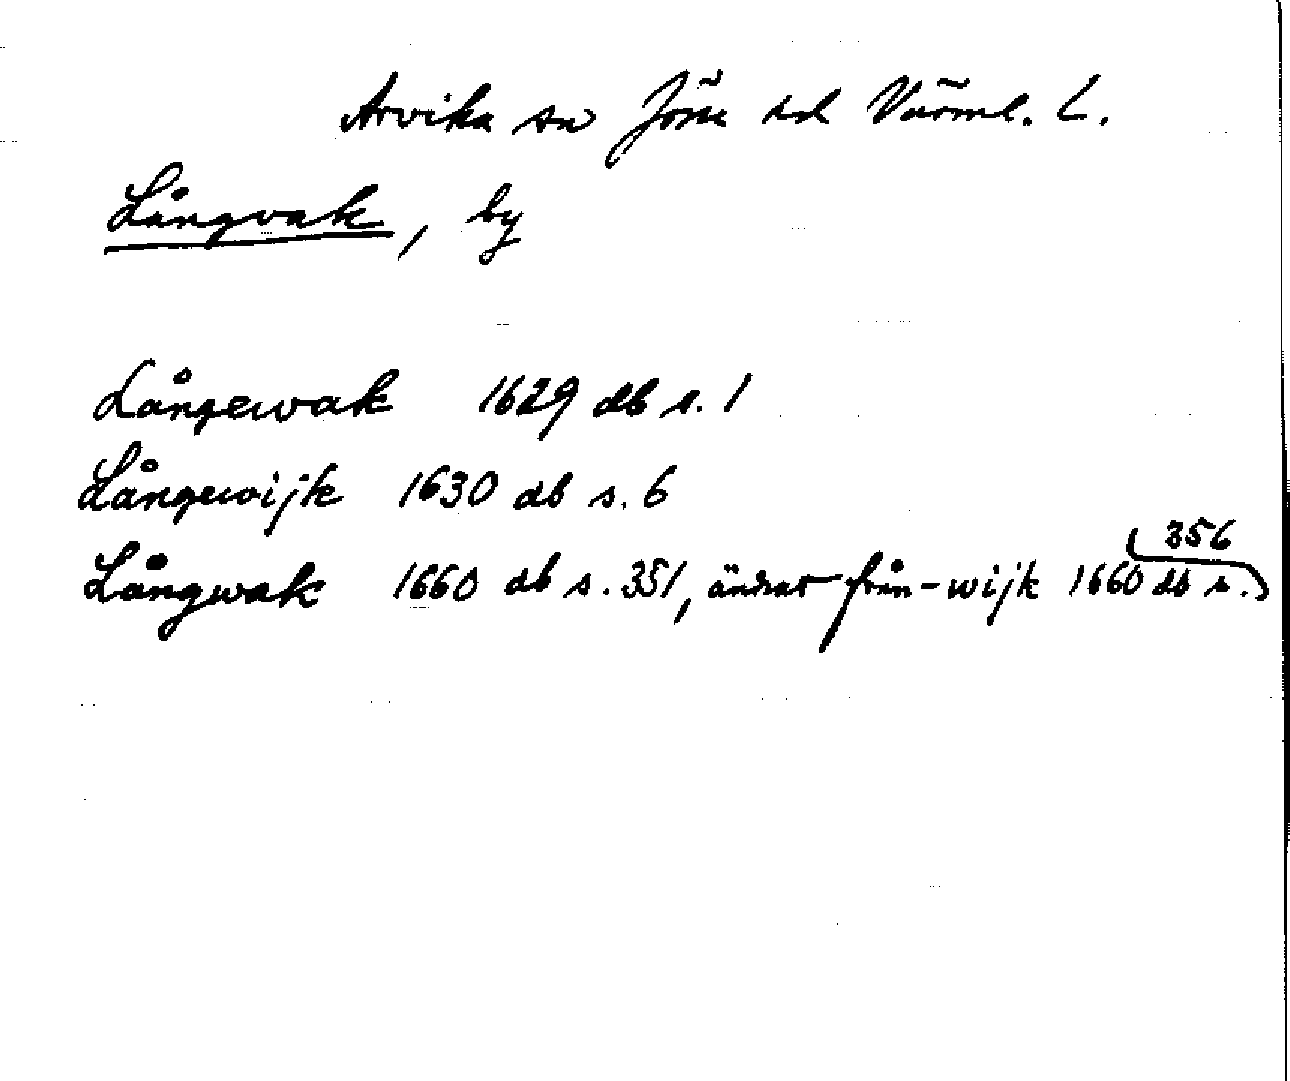 Arvika sn Jösse hd Värml. L.
Långvak, by
Långewak 1629 db s. 1
Långewijk 1630 db s. 6
Långwak 1660 db s. 351, ändrat från -wijk 1660 db s. 356